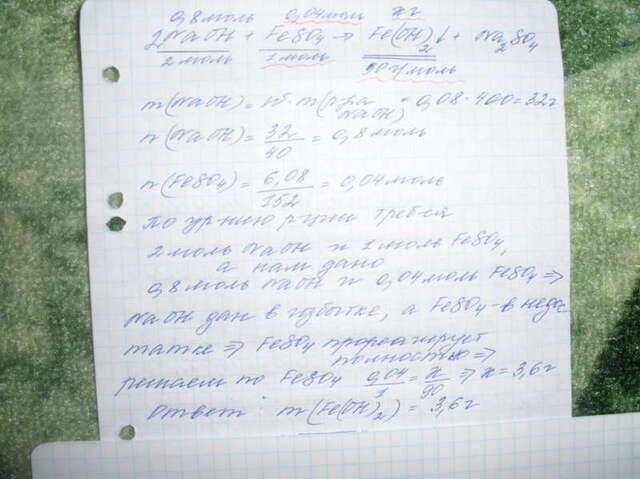 0,8моль 0,04моль xг
2NaOH + FeSO₄ → Fe(OH)₂↓ + Na₂SO₄
2моль 1моль 90г/моль
m(NaOH) = w · m(р-ра NaOH) = 0,08 · 400 = 32г
n(NaOH) = 32/40 = 0,8моль
n(FeSO₄) = 6,08/152 = 0,04моль
по ур-нию р-ции требся
2моль NaOH и 1моль FeSO₄,
а нам дано
0,8моль NaOH и 0,04моль FeSO₄ ⇒
NaOH дан в избытке, а FeSO₄ - в недос
татке ⇒ FeSO₄ прореагирует
полностью ⇒
решаем по FeSO₄ 0,04/1 = x/90 ⇒ x = 3,6г
Ответ: m(Fe(OH)₂) = 3,6г